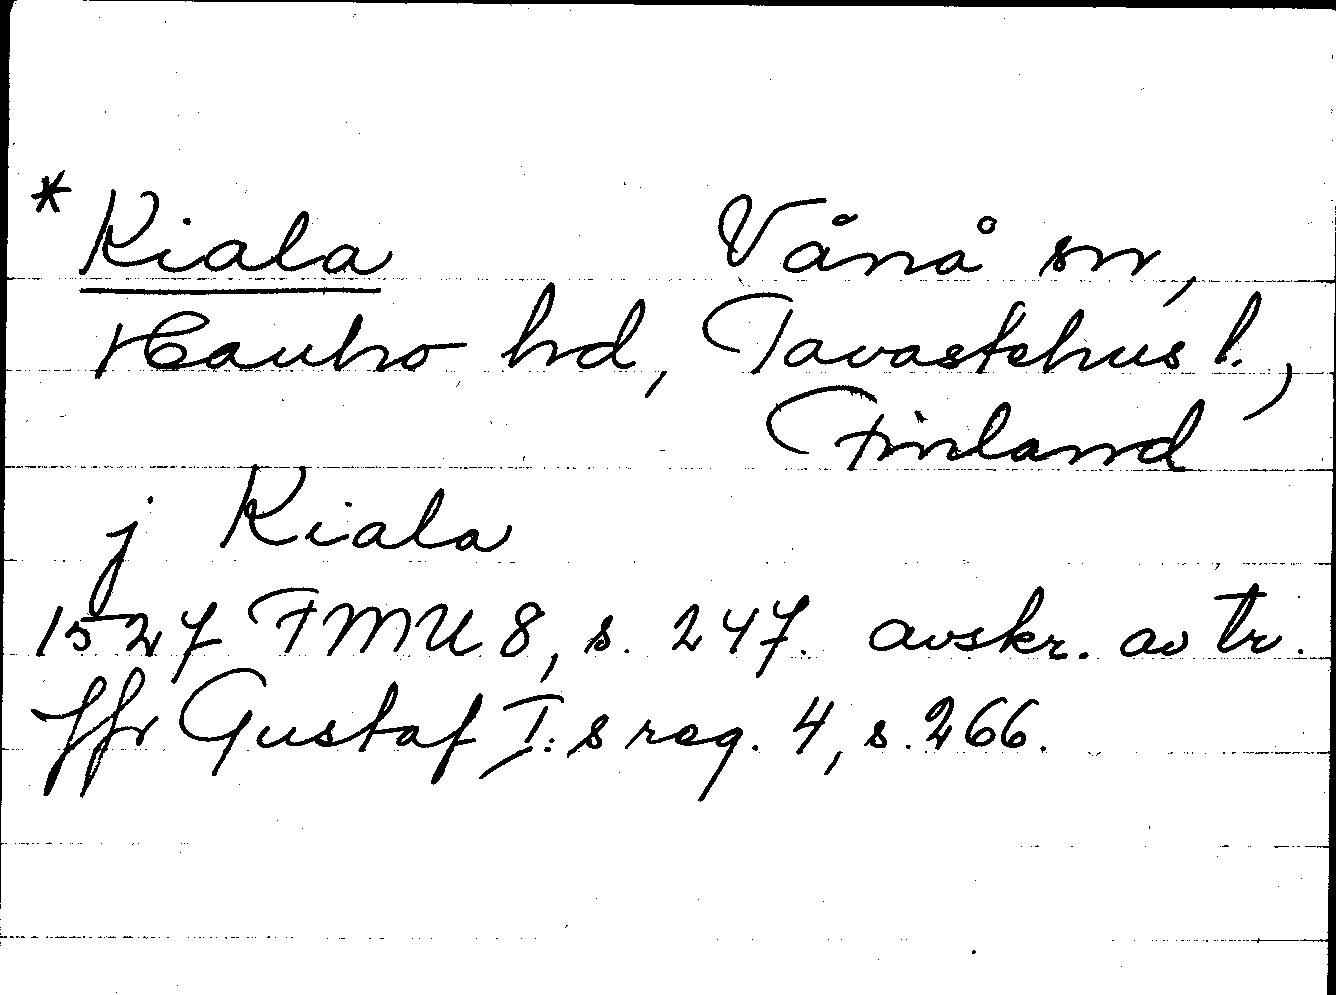 * Kiala Vånå sn,
Hauho hd, Tavastehus l.,
Finland
j Kiala
1527 FMU 8, s. 247. avskr. av tr.
Jfr Gustaf I:s reg. 4, s. 266.